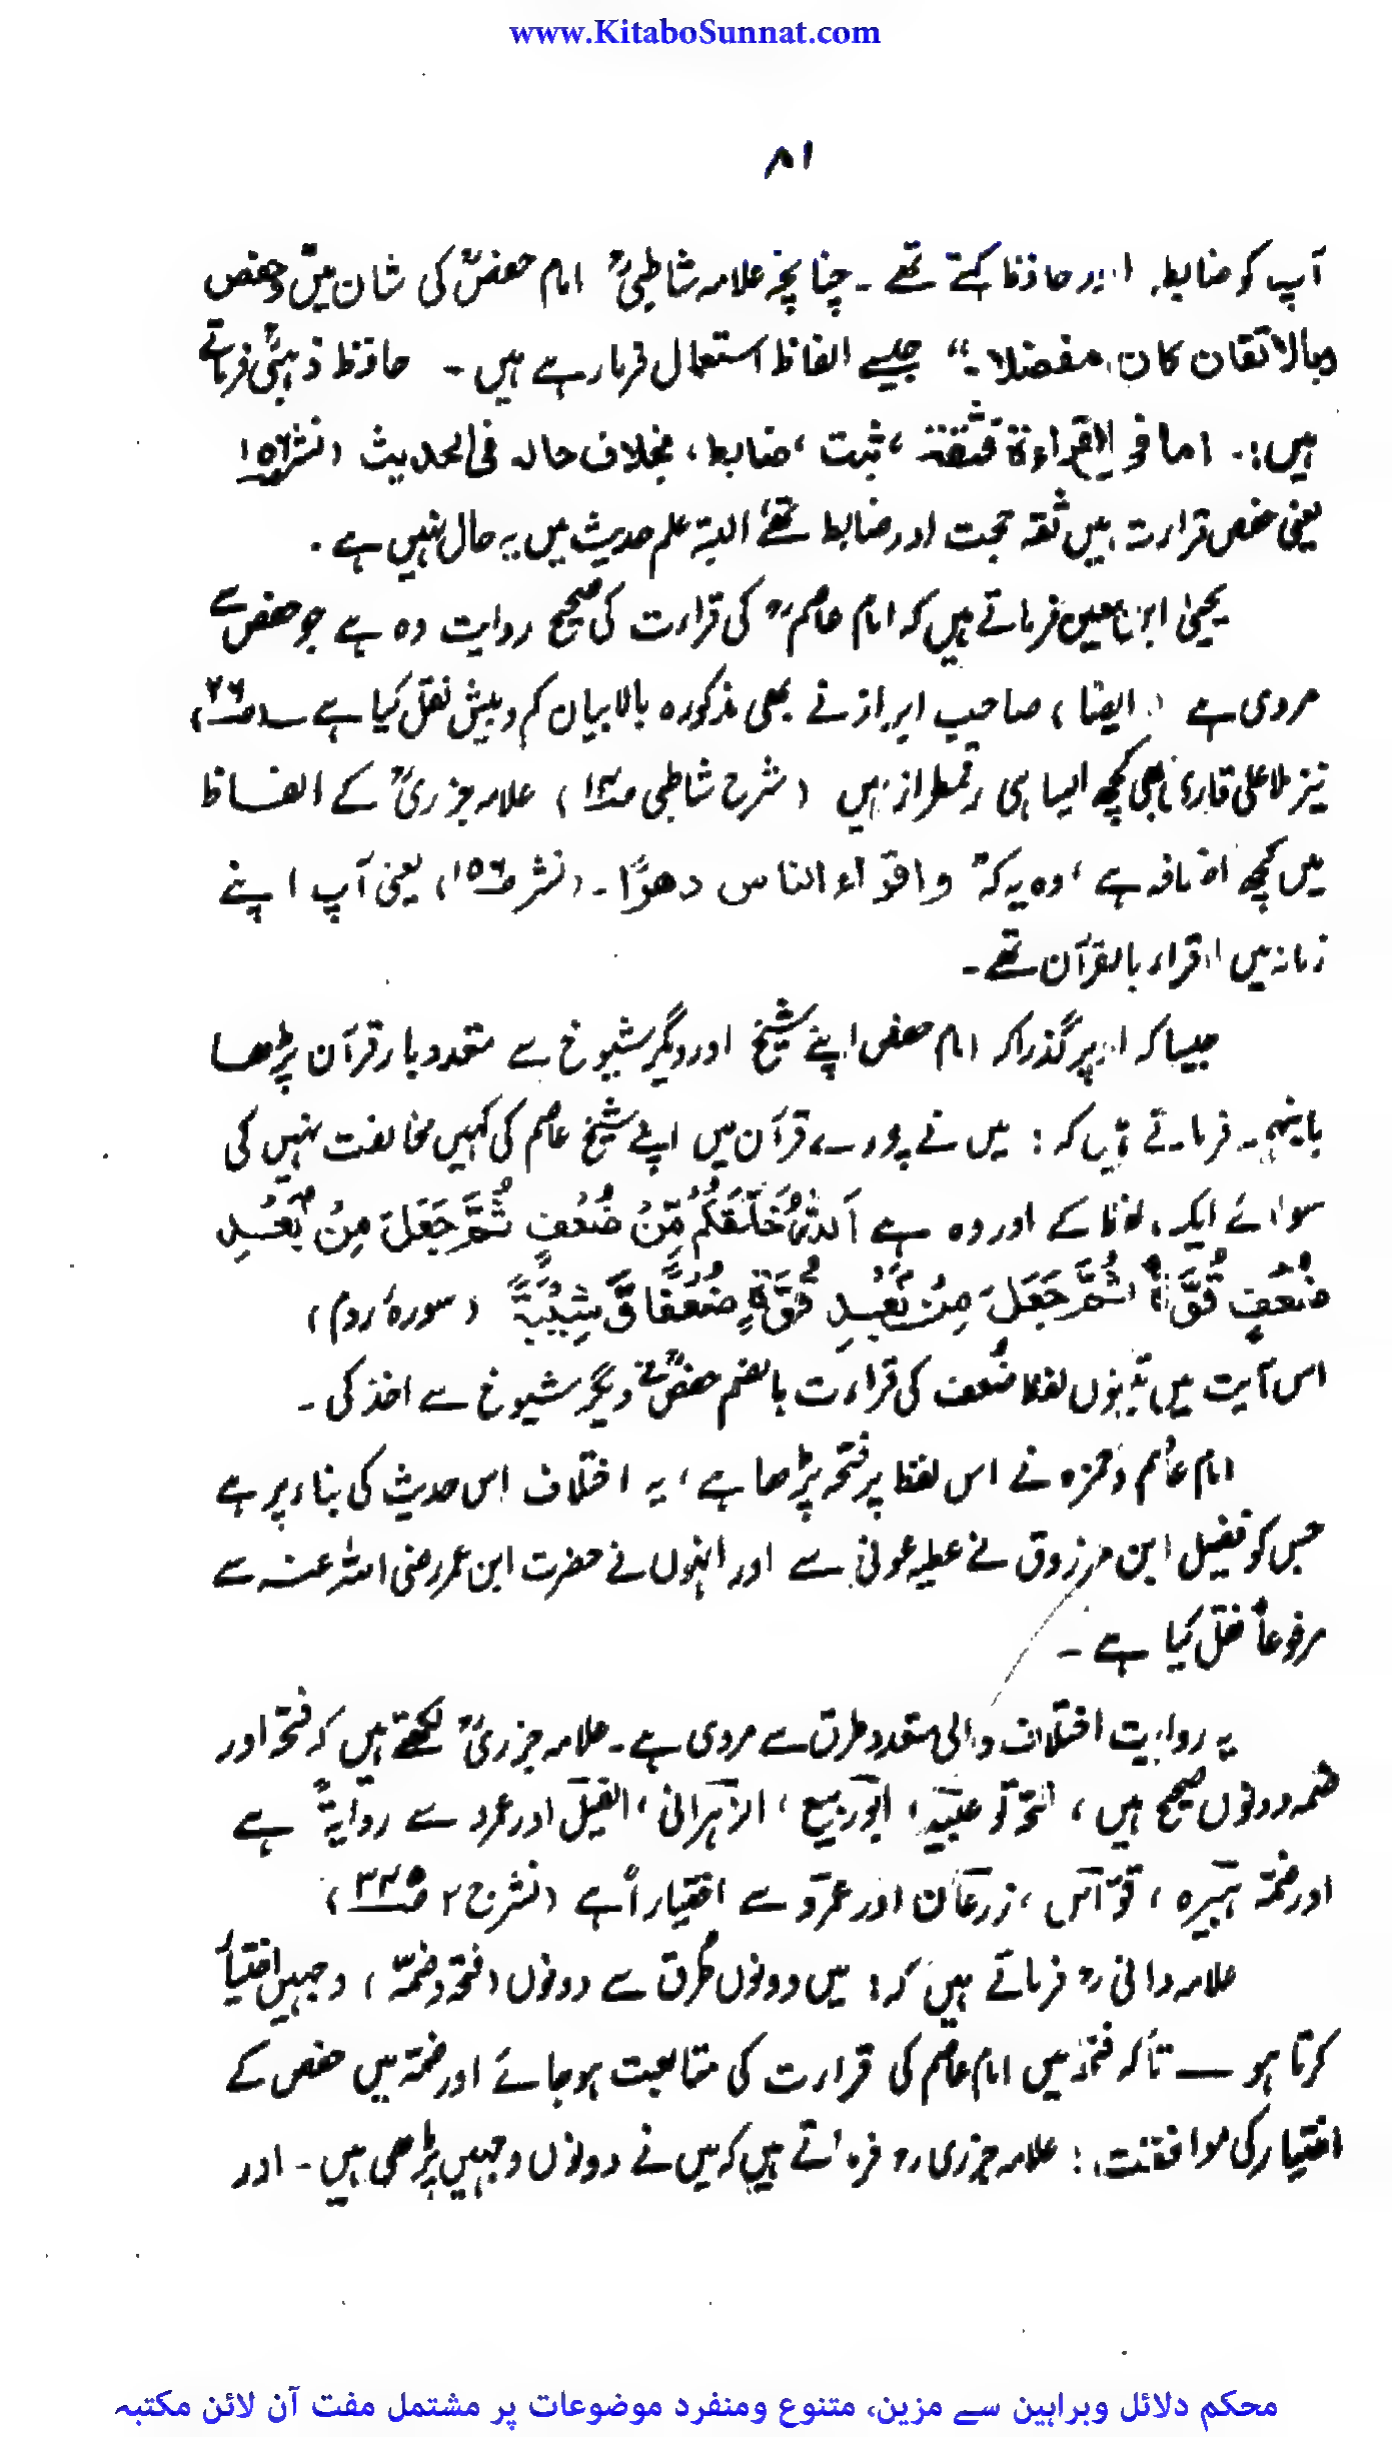 www.KitaboSunnat.com
۸۱
آپ کو ضابط اور حافظ کہتے تھے ۔ چنانچہ علامہ شاطبیؒ امام حفصؒ کی شان میں وحفص
وبالاتقان کان مفضلا ۔“ جیسے الفاظ استعمال فرما رہے ہیں ۔ حافظ ذہبیؒ فرماتے
ہیں :۔ اما فی القراءۃ فثقۃ ، ثبت ، ضابط ، بخلاف حالہ فی الحدیث (نشر ۱۵۶
یعنی حفص قرارت میں ثقہ حجت اور ضابط تھے البتہ علم حدیث میں یہ حال نہیں ہے .
یحییٰ ابن معین فرماتے ہیں کہ امام عاصمؒ کی قرارت کی صحیح روایت وہ ہے جو حفص سے
مروی ہے (ایضاً) صاحب ابراز نے بھی مذکورہ بالا بیان کم وبیش نقل کیا ہے (صـ ۲۶)
نیز ملا علی قاریؒ بھی کچھ ایسا ہی رقمطراز ہیں (شرح شاطبی صـ ۱۴) علامہ جزریؒ کے الفاظ
میں کچھ اضافہ ہے ، وہ یہ کہ ” واقراء الناس دھرًا ۔ (نشر صـ ۱۵۶) یعنی آپ اپنے
زمانہ میں اقراء بالقرآن تھے ۔
جیساکہ اوپر گذرا کہ امام حفص اپنے شیخ اور دیگر شیوخ سے متعدد بار قرآن پڑھا
باینہمہ فرماتے ہیں کہ : میں نے پورے قرآن میں اپنے شیخ عاصم کی کہیں مخالفت نہیں کی
سوائے ایک لفظ کے اور وہ ہے اَللّٰہُ خَلَقَکُمْ مِّنْ ضُعْفٍ ثُمَّ جَعَلَ مِنْ بَعْدِ
ضُعْفٍ قُوَّۃً ثُمَّ جَعَلَ مِنْ بَعْدِ قُوَّۃٍ ضُعْفًا وَّ شَیْبَۃً (سورۂ روم)
اس آیت میں تینوں لفظ ضُعف کی قراءت بالضم حفصؒ نے دیگر شیوخ سے اخذ کی ۔
امام عاصم وحمزہ نے اس لفظ پر فتحہ پڑھا ہے ، یہ اختلاف اس حدیث کی بناء پر ہے
جس کو فضیل ابن مرزوق نے عطیہ عوفی سے اور انہوں نے حضرت ابن عمر رضی اللہ عنہ سے
مرفوعاً نقل کیا ہے ۔
یہ روایت اختلاف والی متعدد طرق سے مروی ہے ۔ علامہ جزریؒ لکھتے ہیں کہ فتحہ اور
ضمہ دونوں صحیح ہیں ، فتحہ تو عبیدؔ ، ابو ربیع ، الزہرانی ، الفیل اور عمرو سے روایۃً ہے
اور ضمہ ہبیرہ ، قواس ، زرعان اور عمرو سے اختیاراً ہے (نشر ج ۲ صـ ۳۴۵)
علامہ دانی رح فرماتے ہیں کہ : میں دونوں طرق سے دونوں (فتحہ وضمہ) وجہیں اختیار
کرتا ہو ـــ تاکہ فتحہ میں امام عاصم کی قرارت کی متابعت ہوجائے اور ضمہ میں حفص کے
اختیار کی موافقت : علامہ جزری رح فرماتے ہیں کہ میں نے دونوں وجہیں پڑھی ہیں ۔ اور
محکم دلائل وبراہین سے مزین، متنوع ومنفرد موضوعات پر مشتمل مفت آن لائن مکتبہ